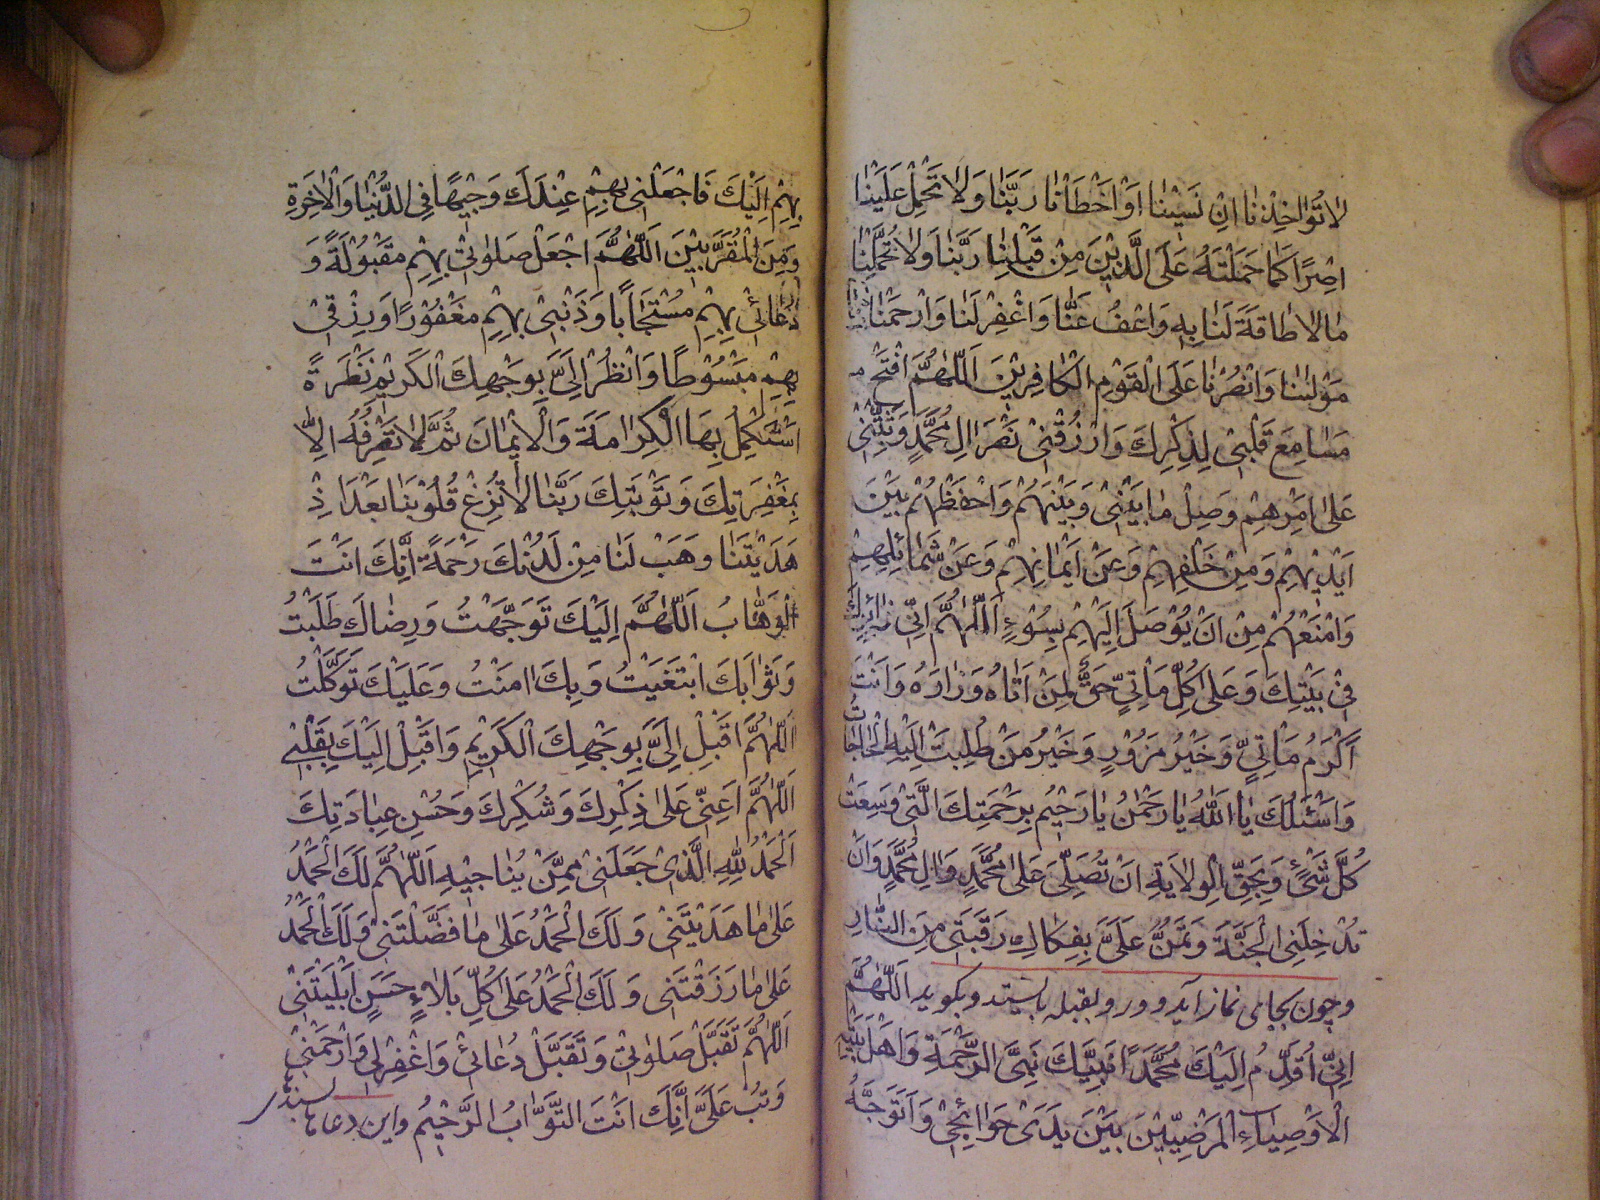 لا تُؤاخِذْنا اِنْ نَسِيْنا اَوْ اَخْطَاْنا رَبَّنا وَلا تَحْمِلْ عَلَيْنا
اِصْرًا كَما حَمَلْتَهُ عَلَى الَّذِيْنَ مِنْ قَبْلِنا رَبَّنا وَلا تُحَمِّلْنا
ما لا طاقَةَ لَنا بِهِ وَاعْفُ عَنّا وَاغْفِرْ لَنا وَارْحَمْنا اَنْتَ
مَوْلينا وَانْصُرْنا عَلَى الْقَوْمِ الْكافِرِيْنَ اَللّهُمَّ افْتَحْ
مَسامِعَ قَلْبِيْ لِذِكْرِكَ وَارْزُقْنِيْ نَصْرَ الِ مُحَمَّدٍ وَثَبِّتْنِيْ
عَلى اَمْرِهِمْ وَصِلْ ما بَيْنِيْ وَبَيْنَهُمْ وَاحْفَظْهُمْ بَيْنَ
اَيْدِيْهِمْ وَمِنْ خَلْفِهِمْ وَعَنْ اَيْمانِهِمْ وَعَنْ شَمائِلِهِمْ
وَامْنَعْهُمْ مِنْ اَنْ يُوْصَلَ اِلَيْهِمْ بِسُوْءٍ اَللّهُمَّ اِنِّيْ زائِرُكَ
فِيْ بَيْتِكَ وَعَلى كُلِّ مَاْتِيٍّ حَقٌّ لِمَنْ اَتاهُ وَزارَهُ وَاَنْتَ
اَكْرَمُ مَاْتِيٍّ وَخَيْرُ مَزُوْرٍ وَخَيْرُ مَنْ طُلِبَتْ اِلَيْهِ الْحاجاتُ
وَاَسْئَلُكَ يا اَللهُ يا رَحْمنُ يا رَحِيْمُ بِرَحْمَتِكَ الَّتِيْ وَسِعَتْ
كُلَّ شَيْئٍ وَبِحَقِّ الْوِلايَةِ اَنْ تُصَلِّيَ عَلى مُحَمَّدٍ وَالِ مُحَمَّدٍ وَاَنْ
تُدْخِلَنِي الْجَنَّةَ وَتَمُنَّ عَلَيَّ بِفِكاكِ رَقَبَتِيْ مِنَ النّارِ
وچون بجاى نماز آيد ورو بقبله بايستد وبكويد اَللّهُمَّ
اِنِّيْ اُقَدِّمُ اِلَيْكَ مُحَمَّدًا نَبِيَّكَ نَبِيَّ الرَّحْمَةِ وَاَهْلَ بَيْتِهِ
الْاَوْصِياءِ الْمَرْضِيِّيْنَ بَيْنَ يَدَيْ حَوائِجِيْ وَاَتَوَجَّهُ
بِهِمْ اِلَيْكَ فَاجْعَلْنِيْ بِهِمْ عِنْدَكَ وَجِيْهًا فِي الدُّنْيا وَالْاخِرَةِ
وَمِنَ الْمُقَرَّبِيْنَ اَللّهُمَّ اجْعَلْ صَلوتِيْ بِهِمْ مَقْبُوْلَةً وَ
دُعائِيْ بِهِمْ مُسْتَجابًا وَذَنْبِيْ بِهِمْ مَغْفُوْرًا وَرِزْقِيْ
بِهِمْ مَبْسُوْطًا وَانْظُرْ اِلَيَّ بِوَجْهِكَ الْكَرِيْمِ نَظْرَةً
اَسْتَكْمِلُ بِهَا الْكَرامَةَ وَالْاِيْمانَ ثُمَّ لا تَصْرِفْهُ اِلّا
بِمَغْفِرَتِكَ وَتَوْبَتِكَ رَبَّنا لا تُزِغْ قُلُوْبَنا بَعْدَ اِذْ
هَدَيْتَنا وَهَبْ لَنا مِنْ لَدُنْكَ رَحْمَةً اِنَّكَ اَنْتَ
الْوَهّابُ اَللّهُمَّ اِلَيْكَ تَوَجَّهْتُ وَرِضاكَ طَلَبْتُ
وَثَوابَكَ ابْتَغَيْتُ وَبِكَ امَنْتُ وَعَلَيْكَ تَوَكَّلْتُ
اَللّهُمَّ اَقْبِلْ اِلَيَّ بِوَجْهِكَ الْكَرِيْمِ وَاَقْبِلْ اِلَيْكَ بِقَلْبِيْ
اَللّهُمَّ اَعِنِّيْ عَلى ذِكْرِكَ وَشُكْرِكَ وَحُسْنِ عِبادَتِكَ
اَلْحَمْدُ لِلّهِ الَّذِيْ جَعَلَنِيْ مِمَّنْ يُناجِيْهِ اَللّهُمَّ لَكَ الْحَمْدُ
عَلى ما هَدَيْتَنِيْ وَلَكَ الْحَمْدُ عَلى ما فَضَّلْتَنِيْ وَلَكَ الْحَمْدُ
عَلى ما رَزَقْتَنِيْ وَلَكَ الْحَمْدُ عَلى كُلِّ بَلاءٍ حَسَنٍ اَبْلَيْتَنِيْ
اَللّهُمَّ تَقَبَّلْ صَلوتِيْ وَتَقَبَّلْ دُعائِيْ وَاغْفِرْ لِيْ وَارْحَمْنِيْ
وَتُبْ عَلَيَّ اِنَّكَ اَنْتَ التَّوّابُ الرَّحِيْمُ واين دعا